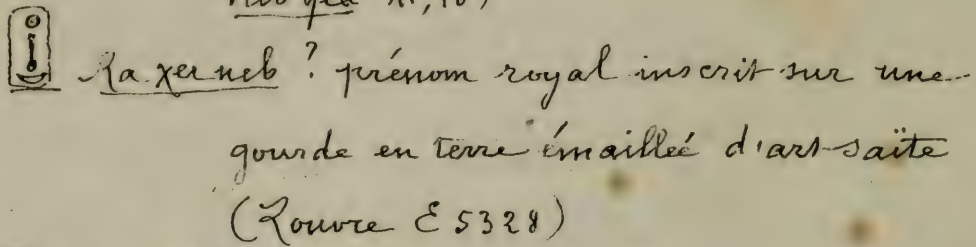 Ra χer neb ? prénom royal inscrit sur une
gourde en terre émaillée d'art saïte
(Louvre E 5328)